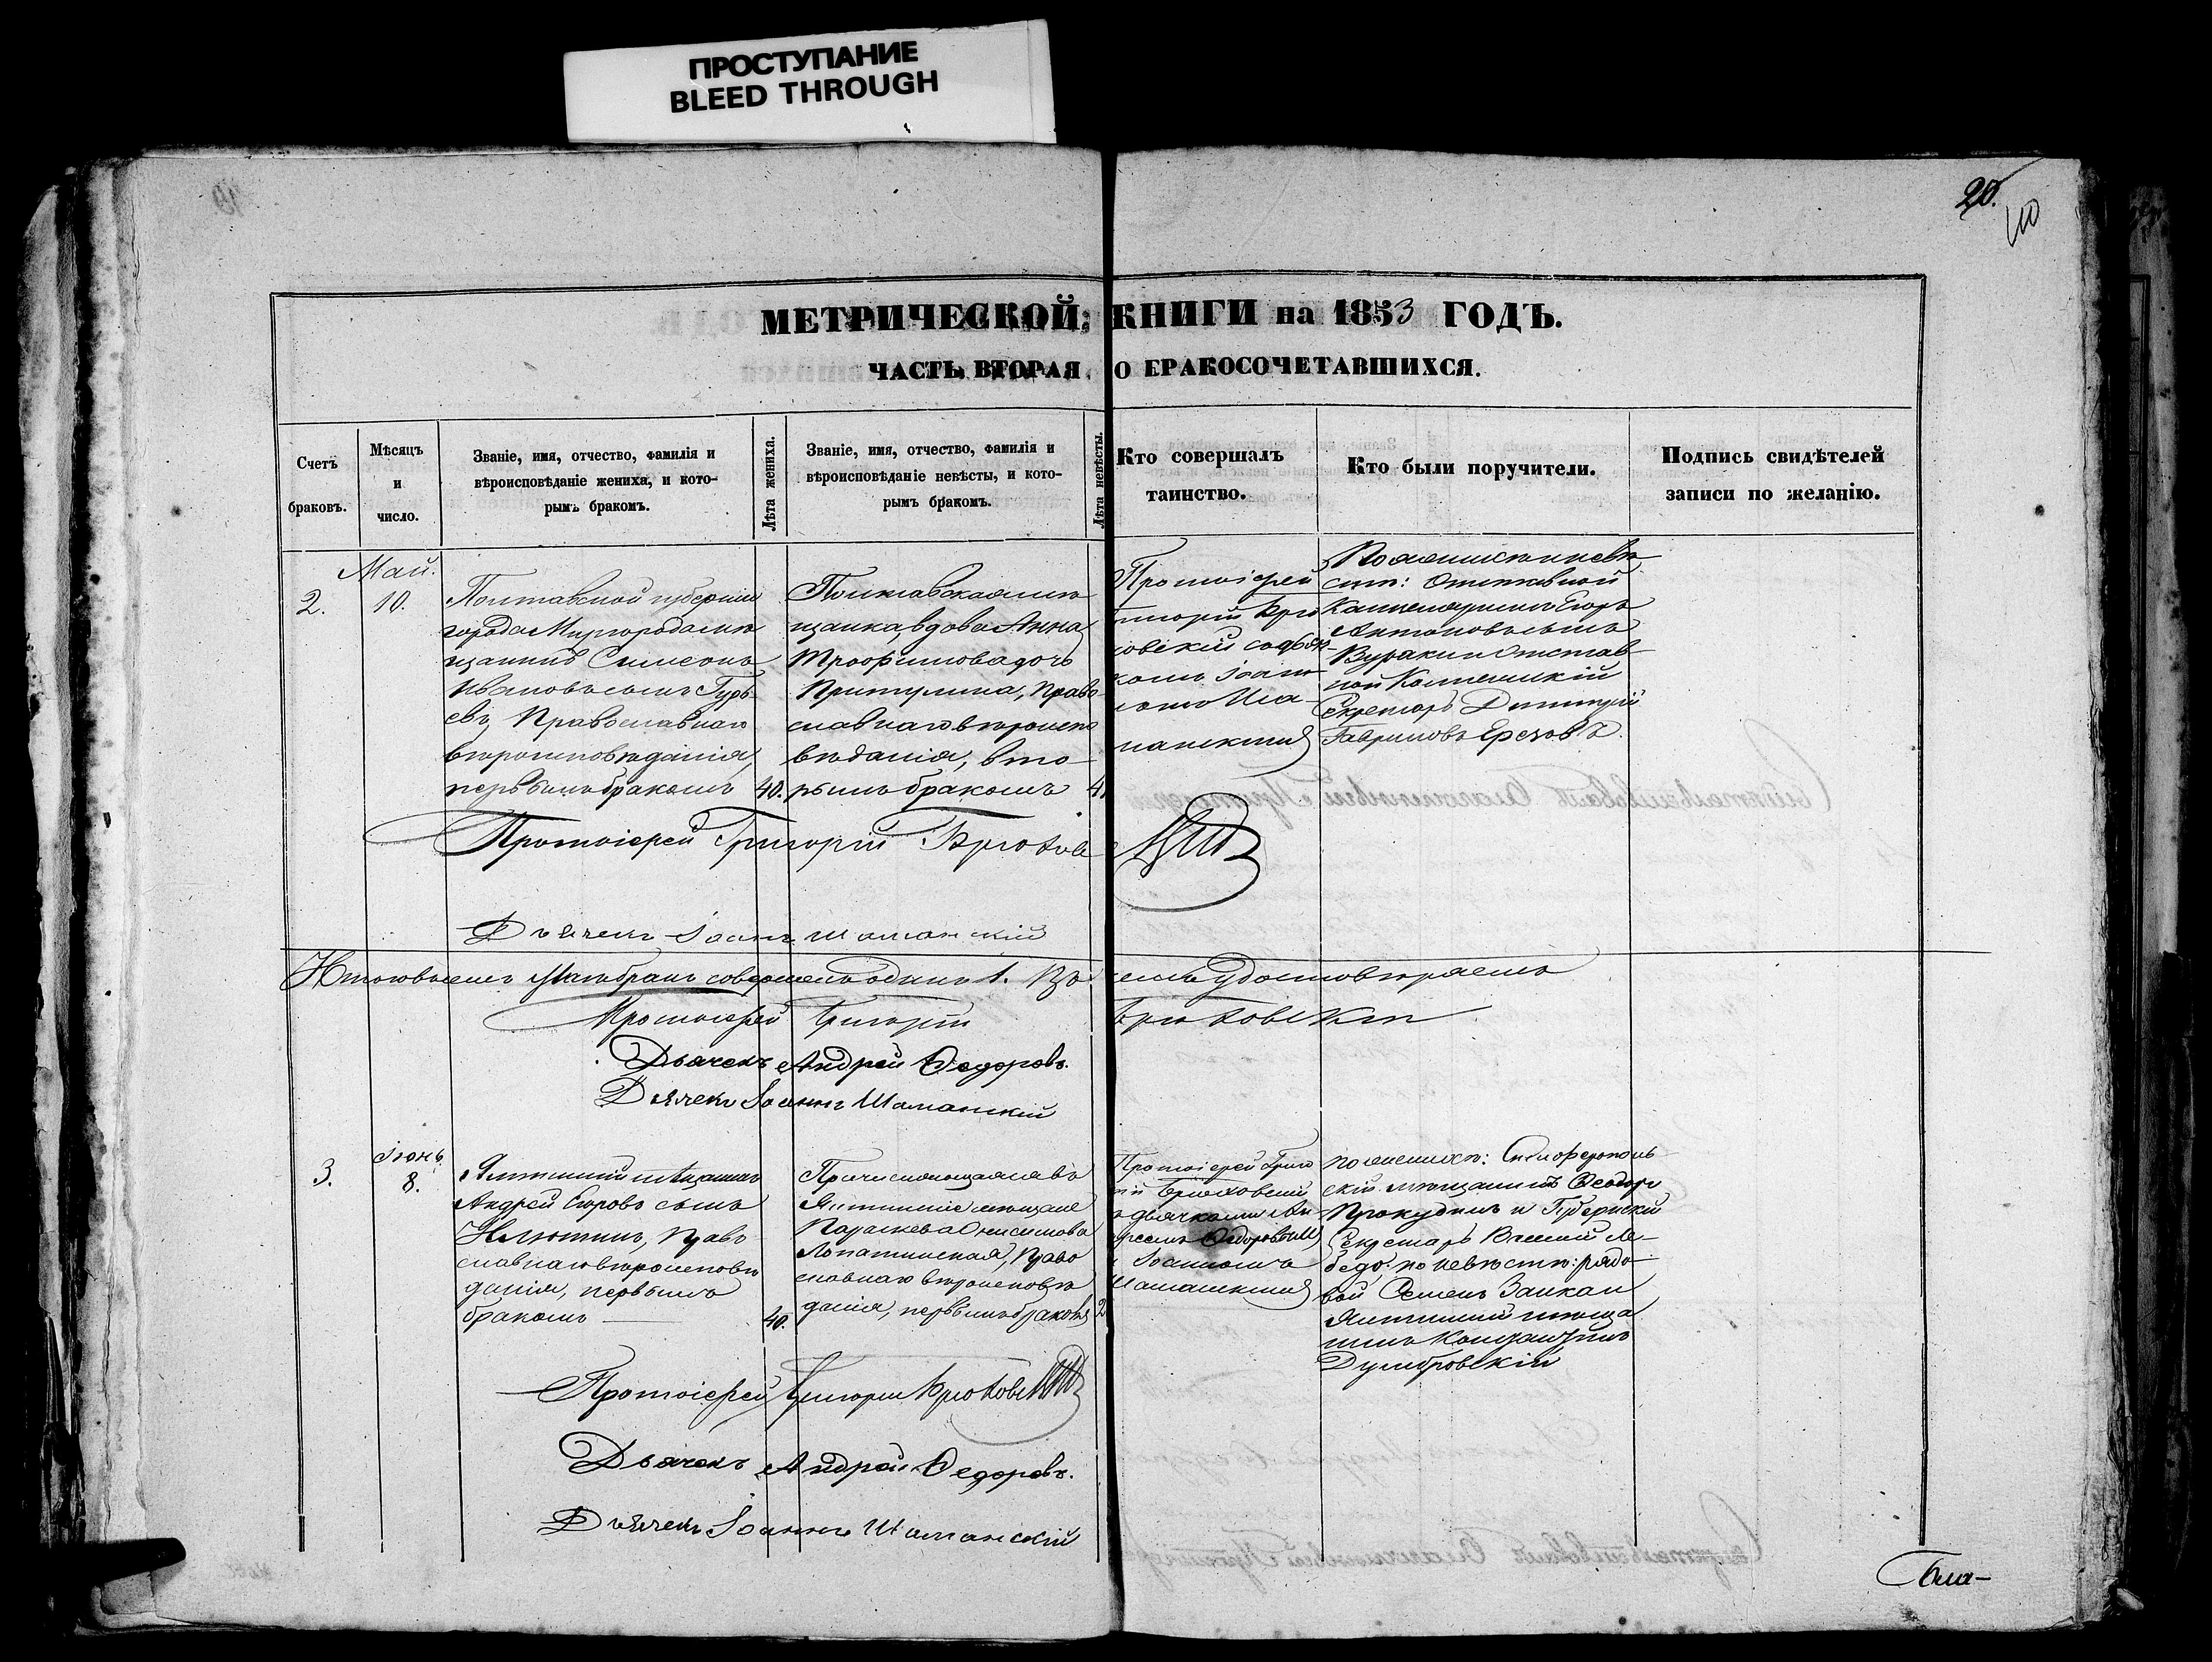 ПРОСТУПАНИЕ
BLEED THROUGH
20.
МЕТРИЧЕСКОЙ КНИГИ на 1853 ГОДЪ.
ЧАСТЬ ВТОРАЯ, О БРАКОСОЧЕТАВШИХСЯ.
Счетъ
браковъ.
Мѣсяцъ
и
число.
Званіе, имя, отчество, фамилія и
вѣроисповѣданіе жениха, и кото-
рымъ бракомъ.
Лѣта жениха.
Званіе, имя, отчество, фамилія и
вѣроисповѣданіе невѣсты, и кото-
рымъ бракомъ.
Лѣта невѣсты.
Кто совершалъ
таинство.
Кто были поручители.
Подпись свидѣтелей
записи по желанію.
2.
Май.
10.
Полтавской губерніи
города Миргорода мѣ
щанинъ Симеонъ
Ивановъ сынъ Гурь
евъ, Православнаго
вѣроисповѣданія,
первымъ бракомъ
40.
Полтавская мѣ
щанка, вдова Анна
Трофимова дочь
Притулина, Право
славнаго вѣроиспо
вѣданія, вто
рымъ бракомъ
Протоіерей
По женихѣ и невѣ
стѣ: Отставной
Канцеляристъ Егоръ
Антоновъ сынъ
Отстав
ной
Секретарь Дмитрій
Гавриловъ
Протоіерей Григорій Брюхов
Дьячекъ Іоаннъ Шаманскій
Итого въ семъ Маѣ бракъ совершенъ одинъ 1. Въ чемъ удостовѣряемъ
Протоіерей Григорій Брюховскій
Дьячекъ Андрей Ѳедоровъ.
Дьячекъ Іоаннъ Шаманскій
3.
Іюнь
8.
Ялтинскій мѣщанинъ
Андрей Егоровъ сынъ
Православнаго вѣроисповѣ
данія, первымъ
бракомъ
40.
Причисляющаяся въ
Ялтинскіе мѣщане
Параскева Онисимова
Лопатинская, Право
славнаго вѣроисповѣ
данія, первымъ бракомъ
Протоіерей Григо
ій Брюховскій
ъ дьячками Ан
дреемъ Ѳедоровымъ
и Іоанномъ
Шаманскимъ
по женихѣ: Симферополь
скій мѣщанинъ Ѳеодоръ
Прокудинъ и Губернскій
Секретарь Василій Ле
бедь. по невѣстѣ: рядо
вой Семенъ
Ялтинскій мѣща
нинъ Константинъ
Думбровскій
Протоіерей Григорій Брюховскій
Дьячекъ Андрей Ѳедоровъ.
Дьячекъ Іоаннъ Шаманскій